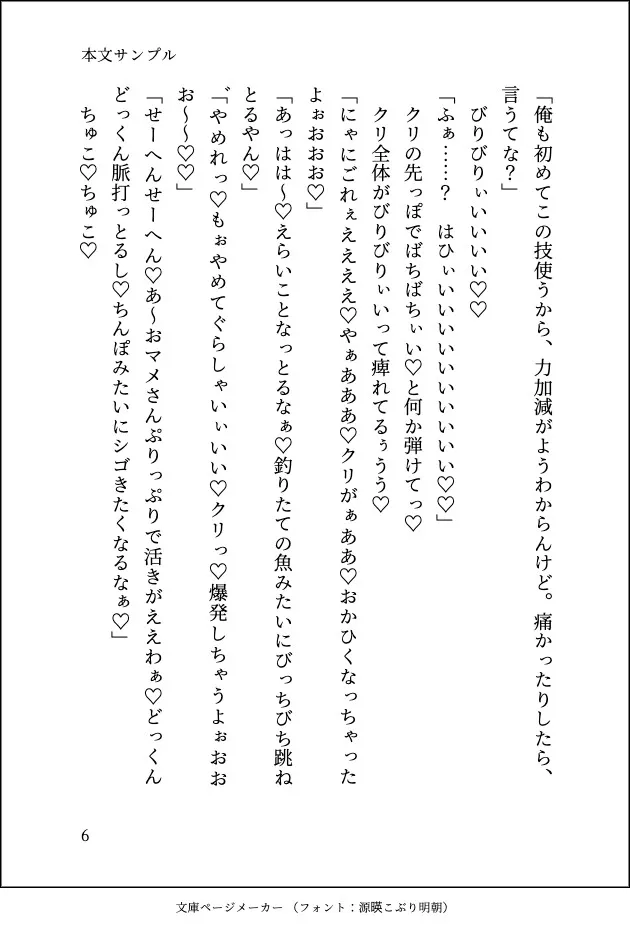 本文サンプル
「俺も初めてこの技使うから、力加減がようわからんけど。痛かったりしたら、
言うてな?」
びりびりぃいいいい♡♡
「ふぁ……?　はひぃいいいいいいいいいいい♡♡」
クリの先っぽでばちばちぃい♡と何か弾けてっ♡
クリ全体がびりびりぃいって痺れてるぅうう♡
「にゃにごれぇええええ♡やぁあああ♡クリがぁああ♡おかひくなっちゃった
よぉおおお♡」
「あっはは〜♡えらいことなっとるなぁ♡釣りたての魚みたいにびっちびち跳ね
とるやん♡」
「゛やめれっ♡もぉやめてぐらしゃいぃいい♡クリっ♡爆発しちゃうよぉおお
お〜〜♡♡」
「せーへんせーへん♡あ〜おマメさんぷりっぷりで活きがええわぁ♡どっくん
どっくん脈打っとるし♡ちんぽみたいにシゴきたくなるなぁ♡」
ちゅこ♡ちゅこ♡
6
文庫ページメーカー（フォント：源暎こぶり明朝）